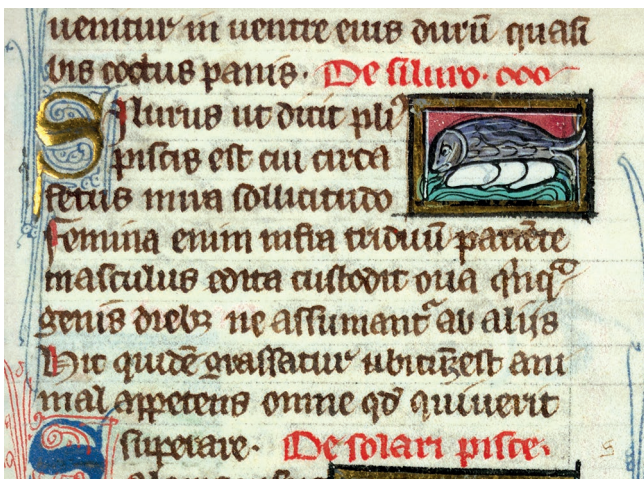 uenitur in uentre eius durū quasi
bis coctus panis. De siluro.
Silurus ut dicit pli
piscis est cui circa
fetus mira sollicitudo
Femina enim infra triduū pariēte
masculus edita custodit oua
genis diebꝫ ne assumant᷑ ab alijs
Hic quidē grassatur ubicūqꝫ est ani
mal appetens omne qd̄ quiuerit
superare. De solari pisce.